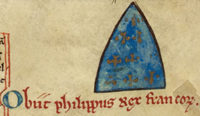 Obiit philippus rex francorꝝ.